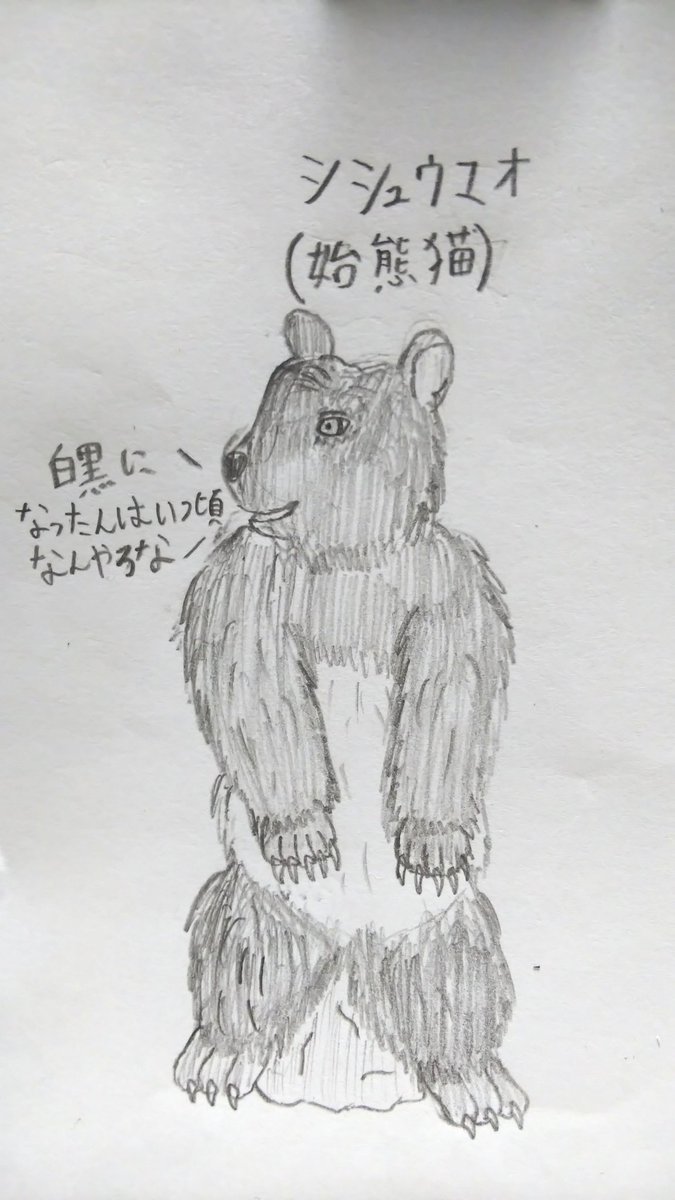 シシュウマオ
(始熊猫)
白黒に
なったんはいつ頃
なんやろな